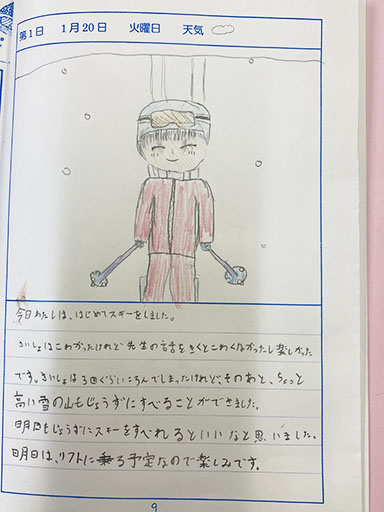 第1日 1月20日 火曜日 天気
今日わたしは、はじめてスキーをしました。
さいしょはこわかったけれど先生の話をきくとこわくなかったし楽しかった
です。さいしょは3回ぐらいころんでしまったけれど、そのあと、ちょっと
高い雪の山もじょうずにすべることができました。
明日もじょうずにスキーをすべれるといいなと思いました。
明日は、リフトに乗る予定なので楽しみです。
9